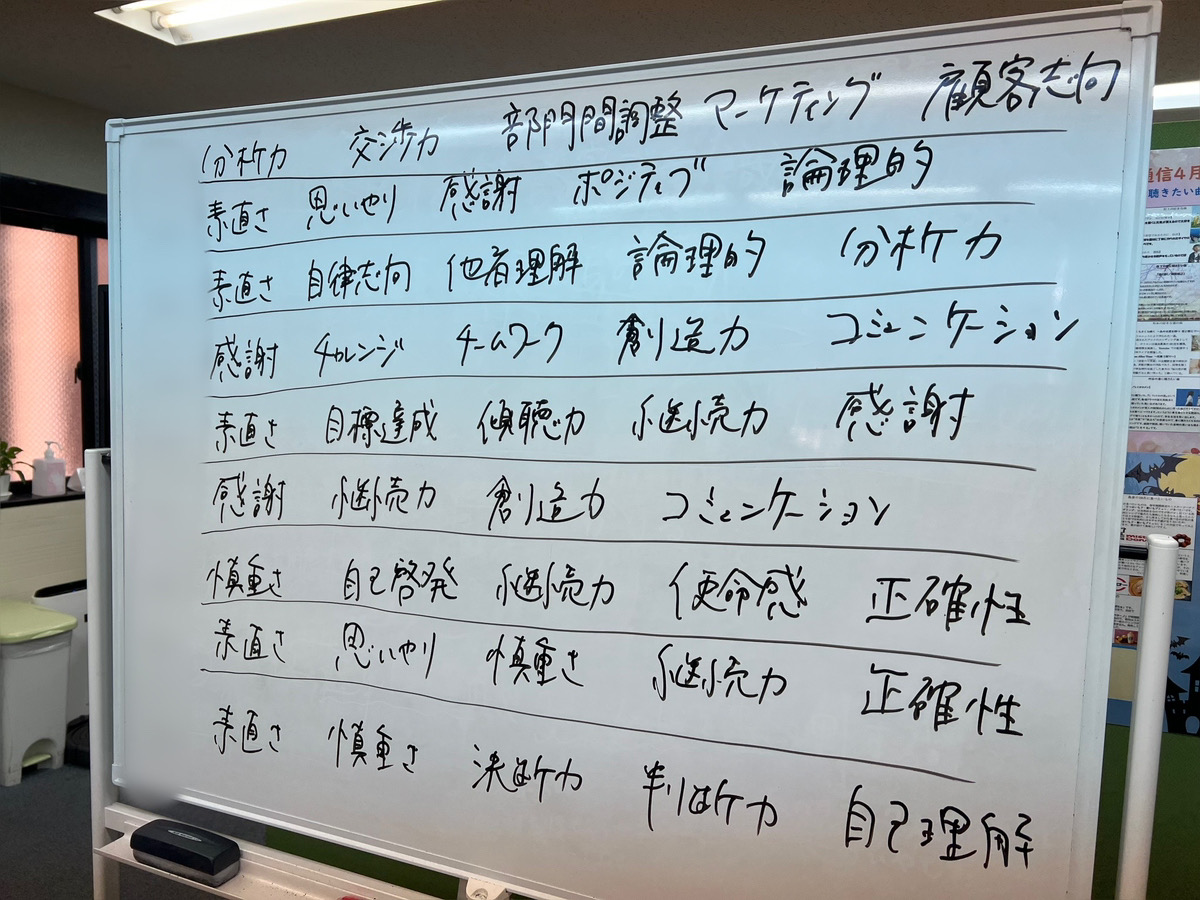 分析力 交渉力 部門間調整 マーケティング 顧客志向
素直さ 思いやり 感謝 ポジティブ 論理的
素直さ 自律志向 他者理解 論理的 分析力
感謝 チャレンジ チームワーク 創造力 コミュニケーション
素直さ 目標達成 傾聴力 継続力 感謝
感謝 継続力 創造力 コミュニケーション
慎重さ 自己啓発 継続力 使命感 正確性
素直さ 思いやり 慎重さ 継続力 正確性
素直さ 慎重さ 決断力 判断力 自己理解
通信4月
聴きたい曲